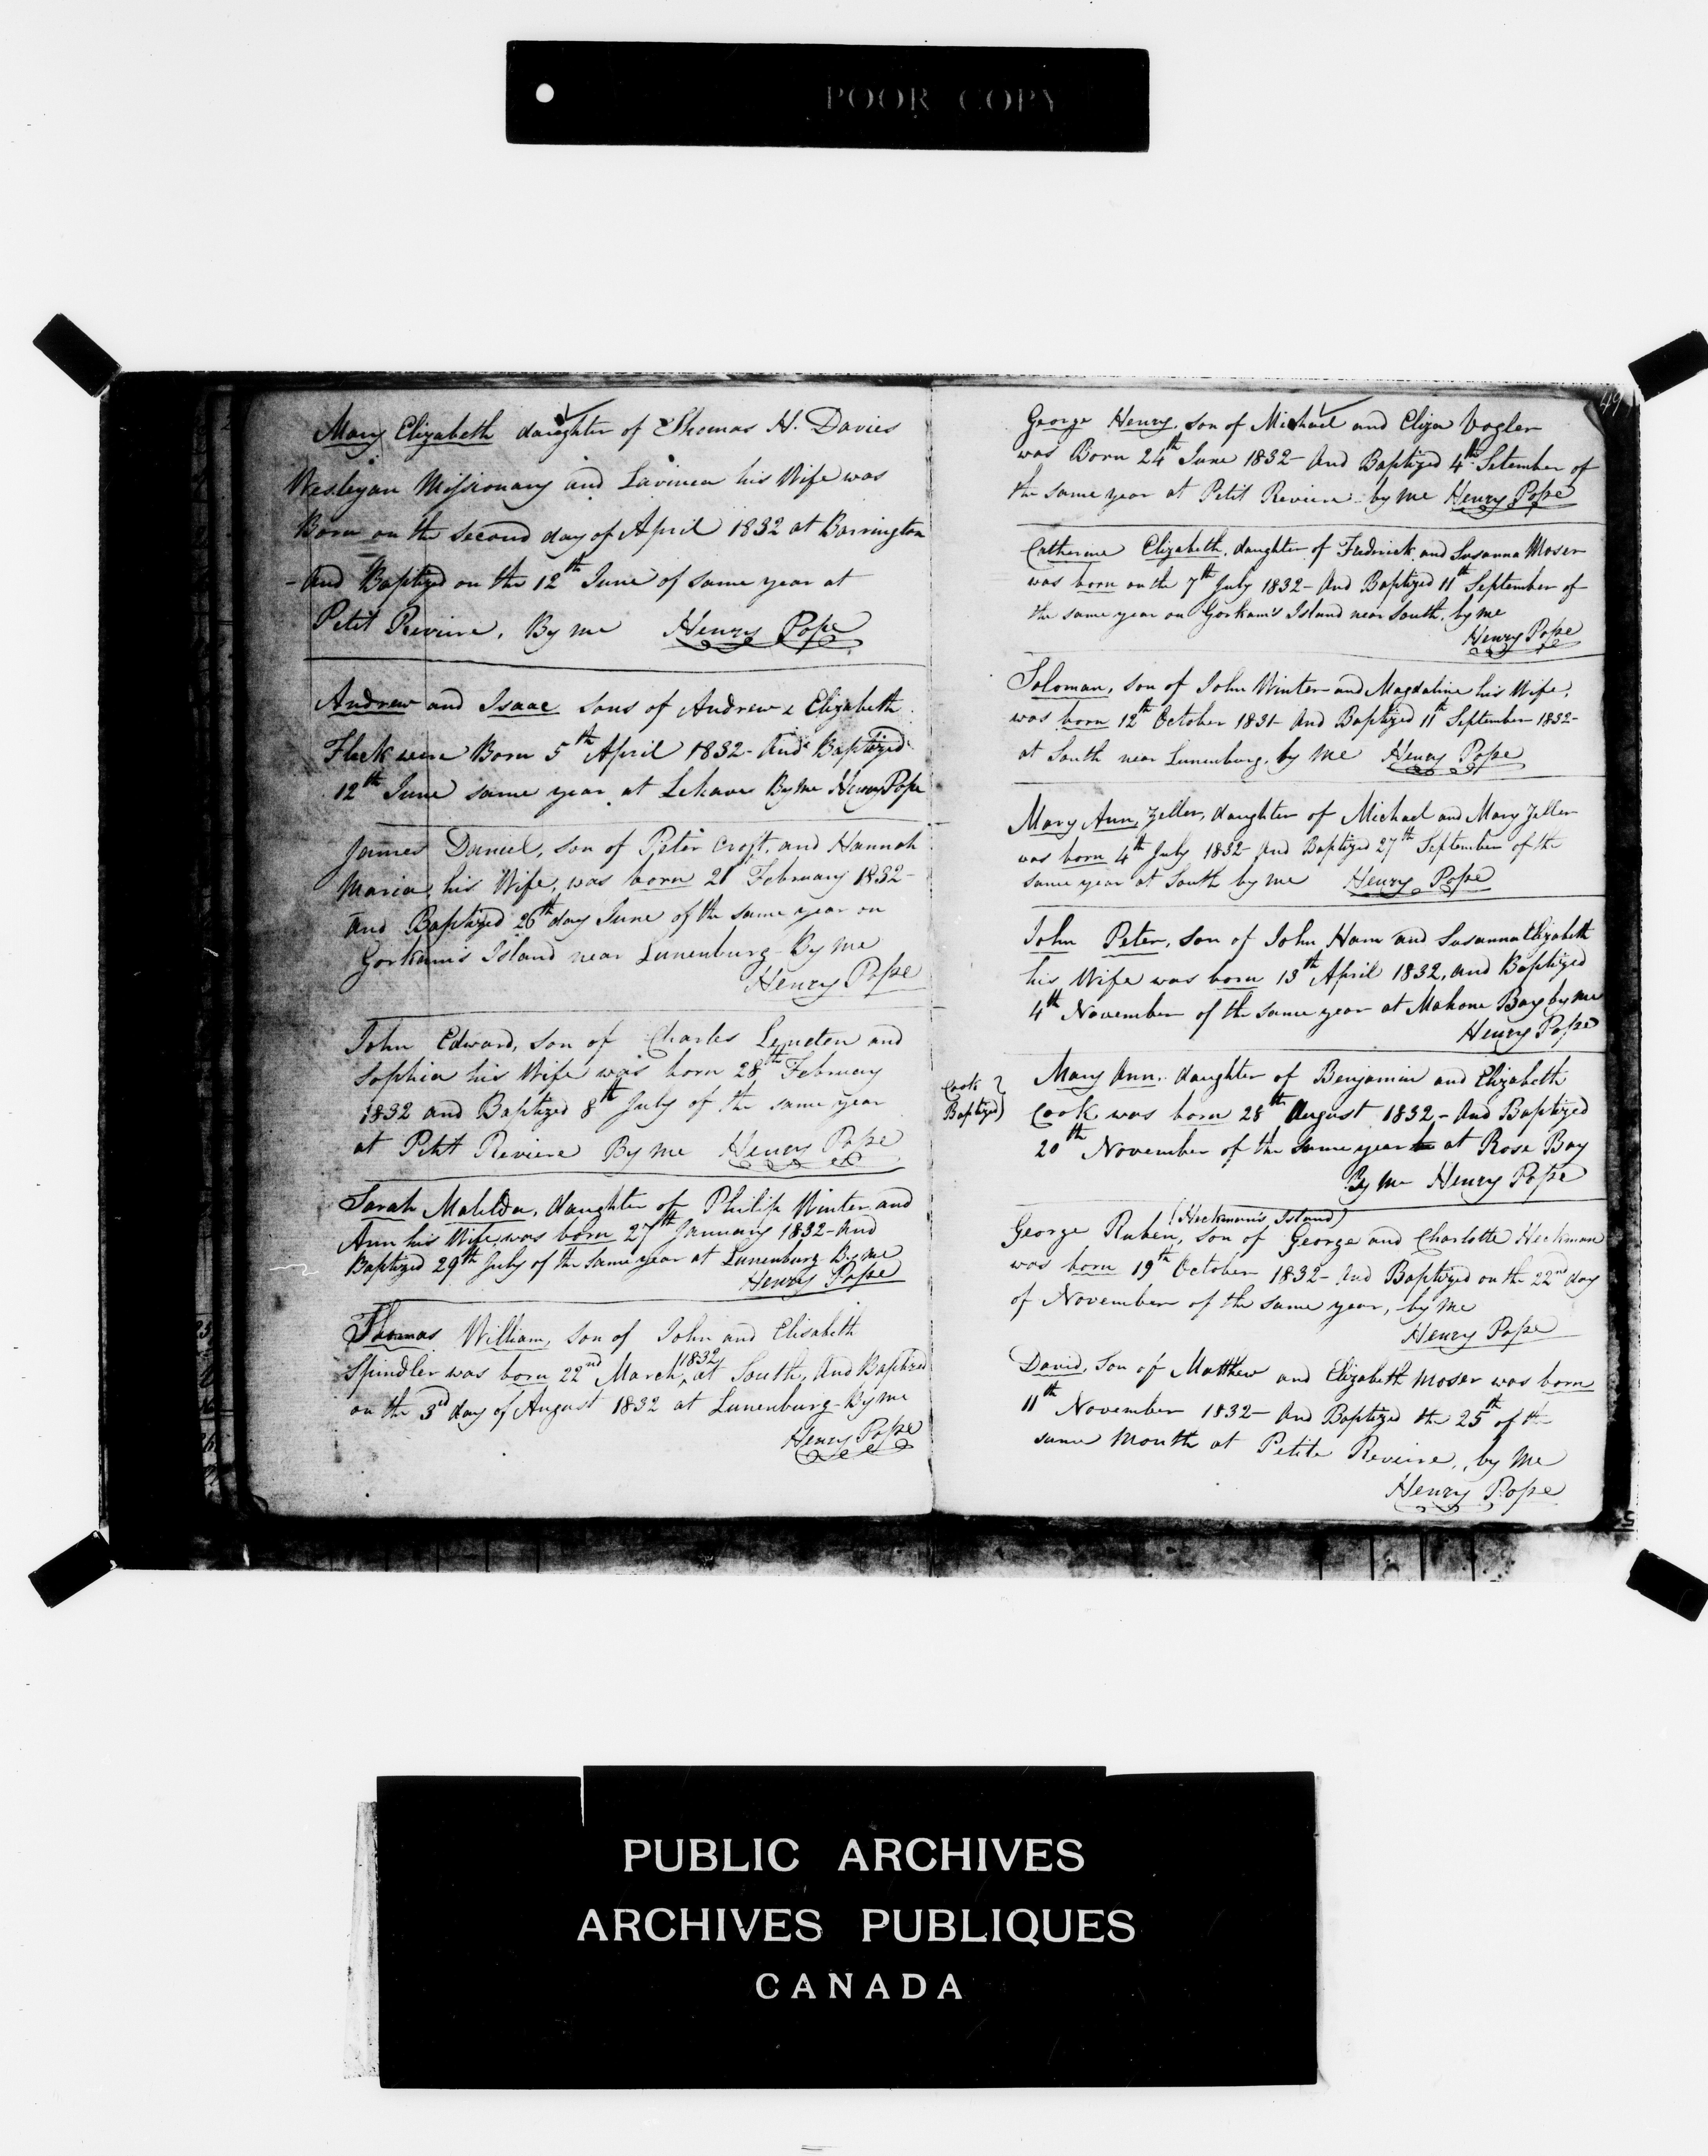 POOR COPY
Mary Elizabeth daughter of Thomas H. Davies
Wesleyan Missionary and Lavinea his Wife was
Born on the second day of April 1832 at Barrington
- And Baptized on the 12th June of same year at
Petit Reviere. By me Henry Pope
Andrew and Isaac sons of Andrew & Elizabeth
Fleck were Born 5th April 1832 - And Baptized
12th June same year at Lehave By me Henry Pope
James Daniel, son of Peter Croft, and Hannah
Maria, his Wife, was born 21 February 1832 -
And Baptized 26th day June of the same year on
Gorkam's Island near Lunenburg - By me
Henry Pope
John Edward, son of Charles and
Sophia his Wife was born 28th February
1832 and Baptized 8th July of the same year
at Petit Reviere By me Henry Pope
Sarah Matilda, daughter of Philip Winter and
Ann his Wife was born 27th January 1832 - And
Baptized 29th July of the same year at Lunenburg By me
Henry Pope
Thomas William, son of John and Elisabeth
Spindler was born 22nd March 1832 at South, And Baptized
on the 3rd day of August 1832 at Lunenburg - By me
Henry Pope
49
George Henry, son of Michael and Eliza Vogler
was Born 24th June 1832 - And Baptized 4th Setember of
the same year at Petit Reviere - by me Henry Pope
Catherine Elizabeth, daughter of Fredrick and Susanna Moser
was born on the 7th July 1832 - And Baptized 11th September of
the same year on Gorkam's Island near South, by me
Henry Pope
Soloman, son of John Winter and Magdaline his Wife,
was born 12th October 1831 - And Baptized 11th September 1832 -
at South near Lunenburg, by me Henry Pope
Mary Ann, Zeller, daughter of Michael and Mary Zeller
was born 4th July 1832 - And Baptized 27th September of the
same year at South by me Henry Pope
John Peter, son of John Ham and Susanna Elizabeth
his Wife was born 13th April 1832, and Baptized
4th November of the same year at Mahone Bay by me
Henry Pope
Cook
Baptized)
Mary Ann, daughter of Benjamin and Elizabeth
Cook was born 28th August 1832 - And Baptized
20th November of the same year at Rose Bay
By me Henry Pope
(Heckman's Island)
George Ruben, son of George and Charlotte Heckman
was born 19th October 1832 - And Baptized on the 22nd day
of November of the same year, by me
Henry Pope
David, son of Matthew and Elizabeth Moser was born
11th November 1832 - And Baptized the 25th of the
same Month at Petite Reviere, by me
Henry Pope
PUBLIC ARCHIVES
ARCHIVES PUBLIQUES
CANADA